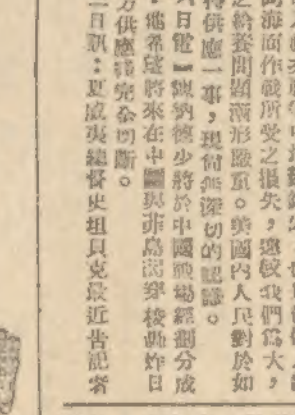 海面作戰所受之損失,遠較我們爲大,
之給養問題漸形嚴重。美國內人民對於如
供應一事,現尚無深切的認識。
日電 陳納德少將於中國戰場經劃分成
希望將來在中國與菲島間穿梭轟炸日
方供應線完全切斷。
二日訊:夏威夷總督史坦貝克最近告記者